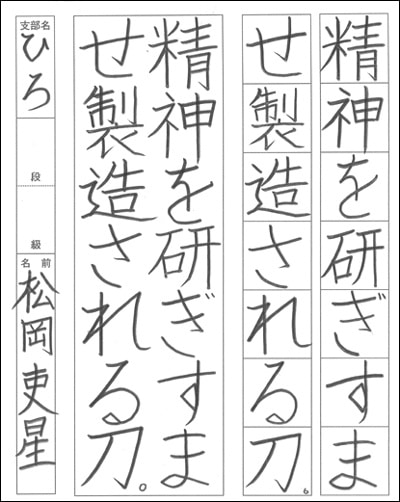 精神を研ぎすま
せ製造される刀
6
精神を研ぎすま
せ製造される刀。
支部名
ひろ
段
級
名前
松岡吏星